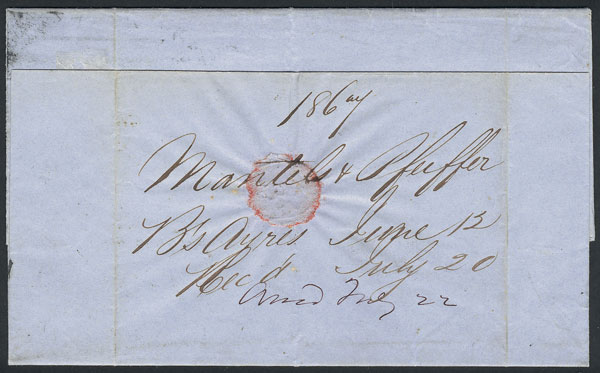 1867
Mantels & Pfeiffer
B's Ayres June 12
Rec'd July 20
Ans'd July 22